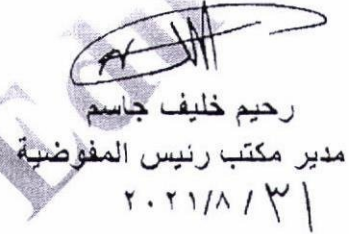 رحيم خليف جاسم
مدير مكتب رئيس المفوضية
٢٠٢١/٨/٣١